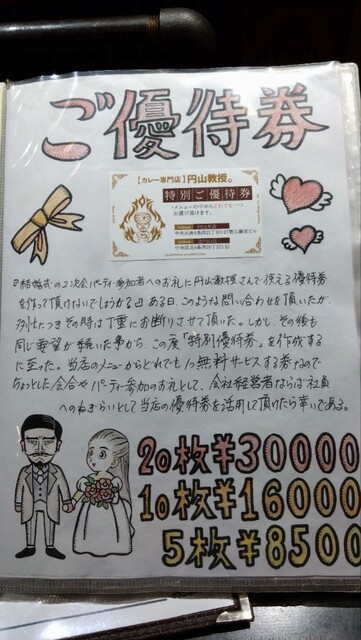 ご優待券
【カレー専門店】円山教授。
特別ご優待券
・メニューの中からどれでも一つ
お選び頂けます。
『結婚式の2次会パーティー参加者へのお礼に円山教授さんで使える優待券
を作って頂けないでしょうか?』ある日、このような問い合わせを頂いたが、
その時は丁重にお断りさせて頂いた。しかし、その後も
同じ要望が続いた事から、この度「特別優待券」を作成する
に至った。当店のメニューからどれでも1つ無料サービスする券なので
ちょっとした会合やパーティー参加のお礼として、会社経営者ならば社員
へのねぎらいとして当店の優待券を活用して頂けたら幸いである。
20枚¥30000
10枚¥16000
5枚¥8500